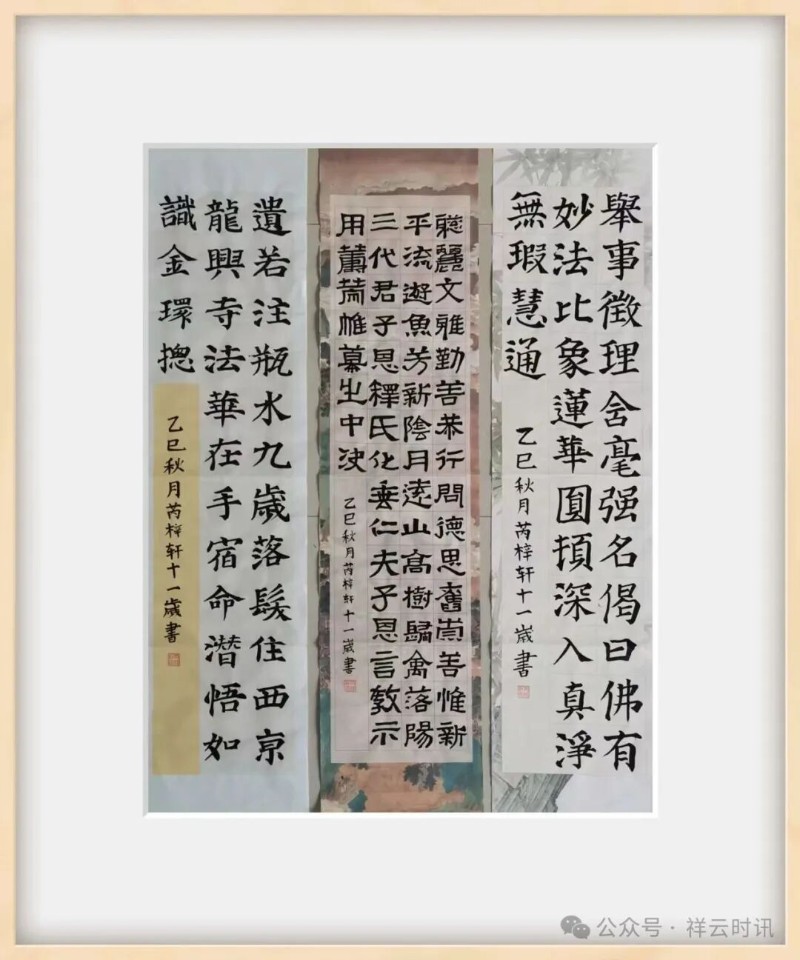 舉事徵理含毫强名偈曰佛有
妙法比象蓮華圓頓深入真淨
無瑕慧通
乙巳秋月芮梓轩十一歲書
麗文雅勤善恭行問德思舊崇善惟新
平流遊魚芳新陰月遠山高樹歸禽落陽
三代君子恩釋氏化垂仁夫子恩言教示
用荷帷幕中决
乙巳秋月芮梓轩十一歲書
遺若注瓶水九歲落髮住西京
龍興寺法華在手宿命潛悟如
識金環揔
乙巳秋月芮梓轩十一歲書
公众号·祥云时讯